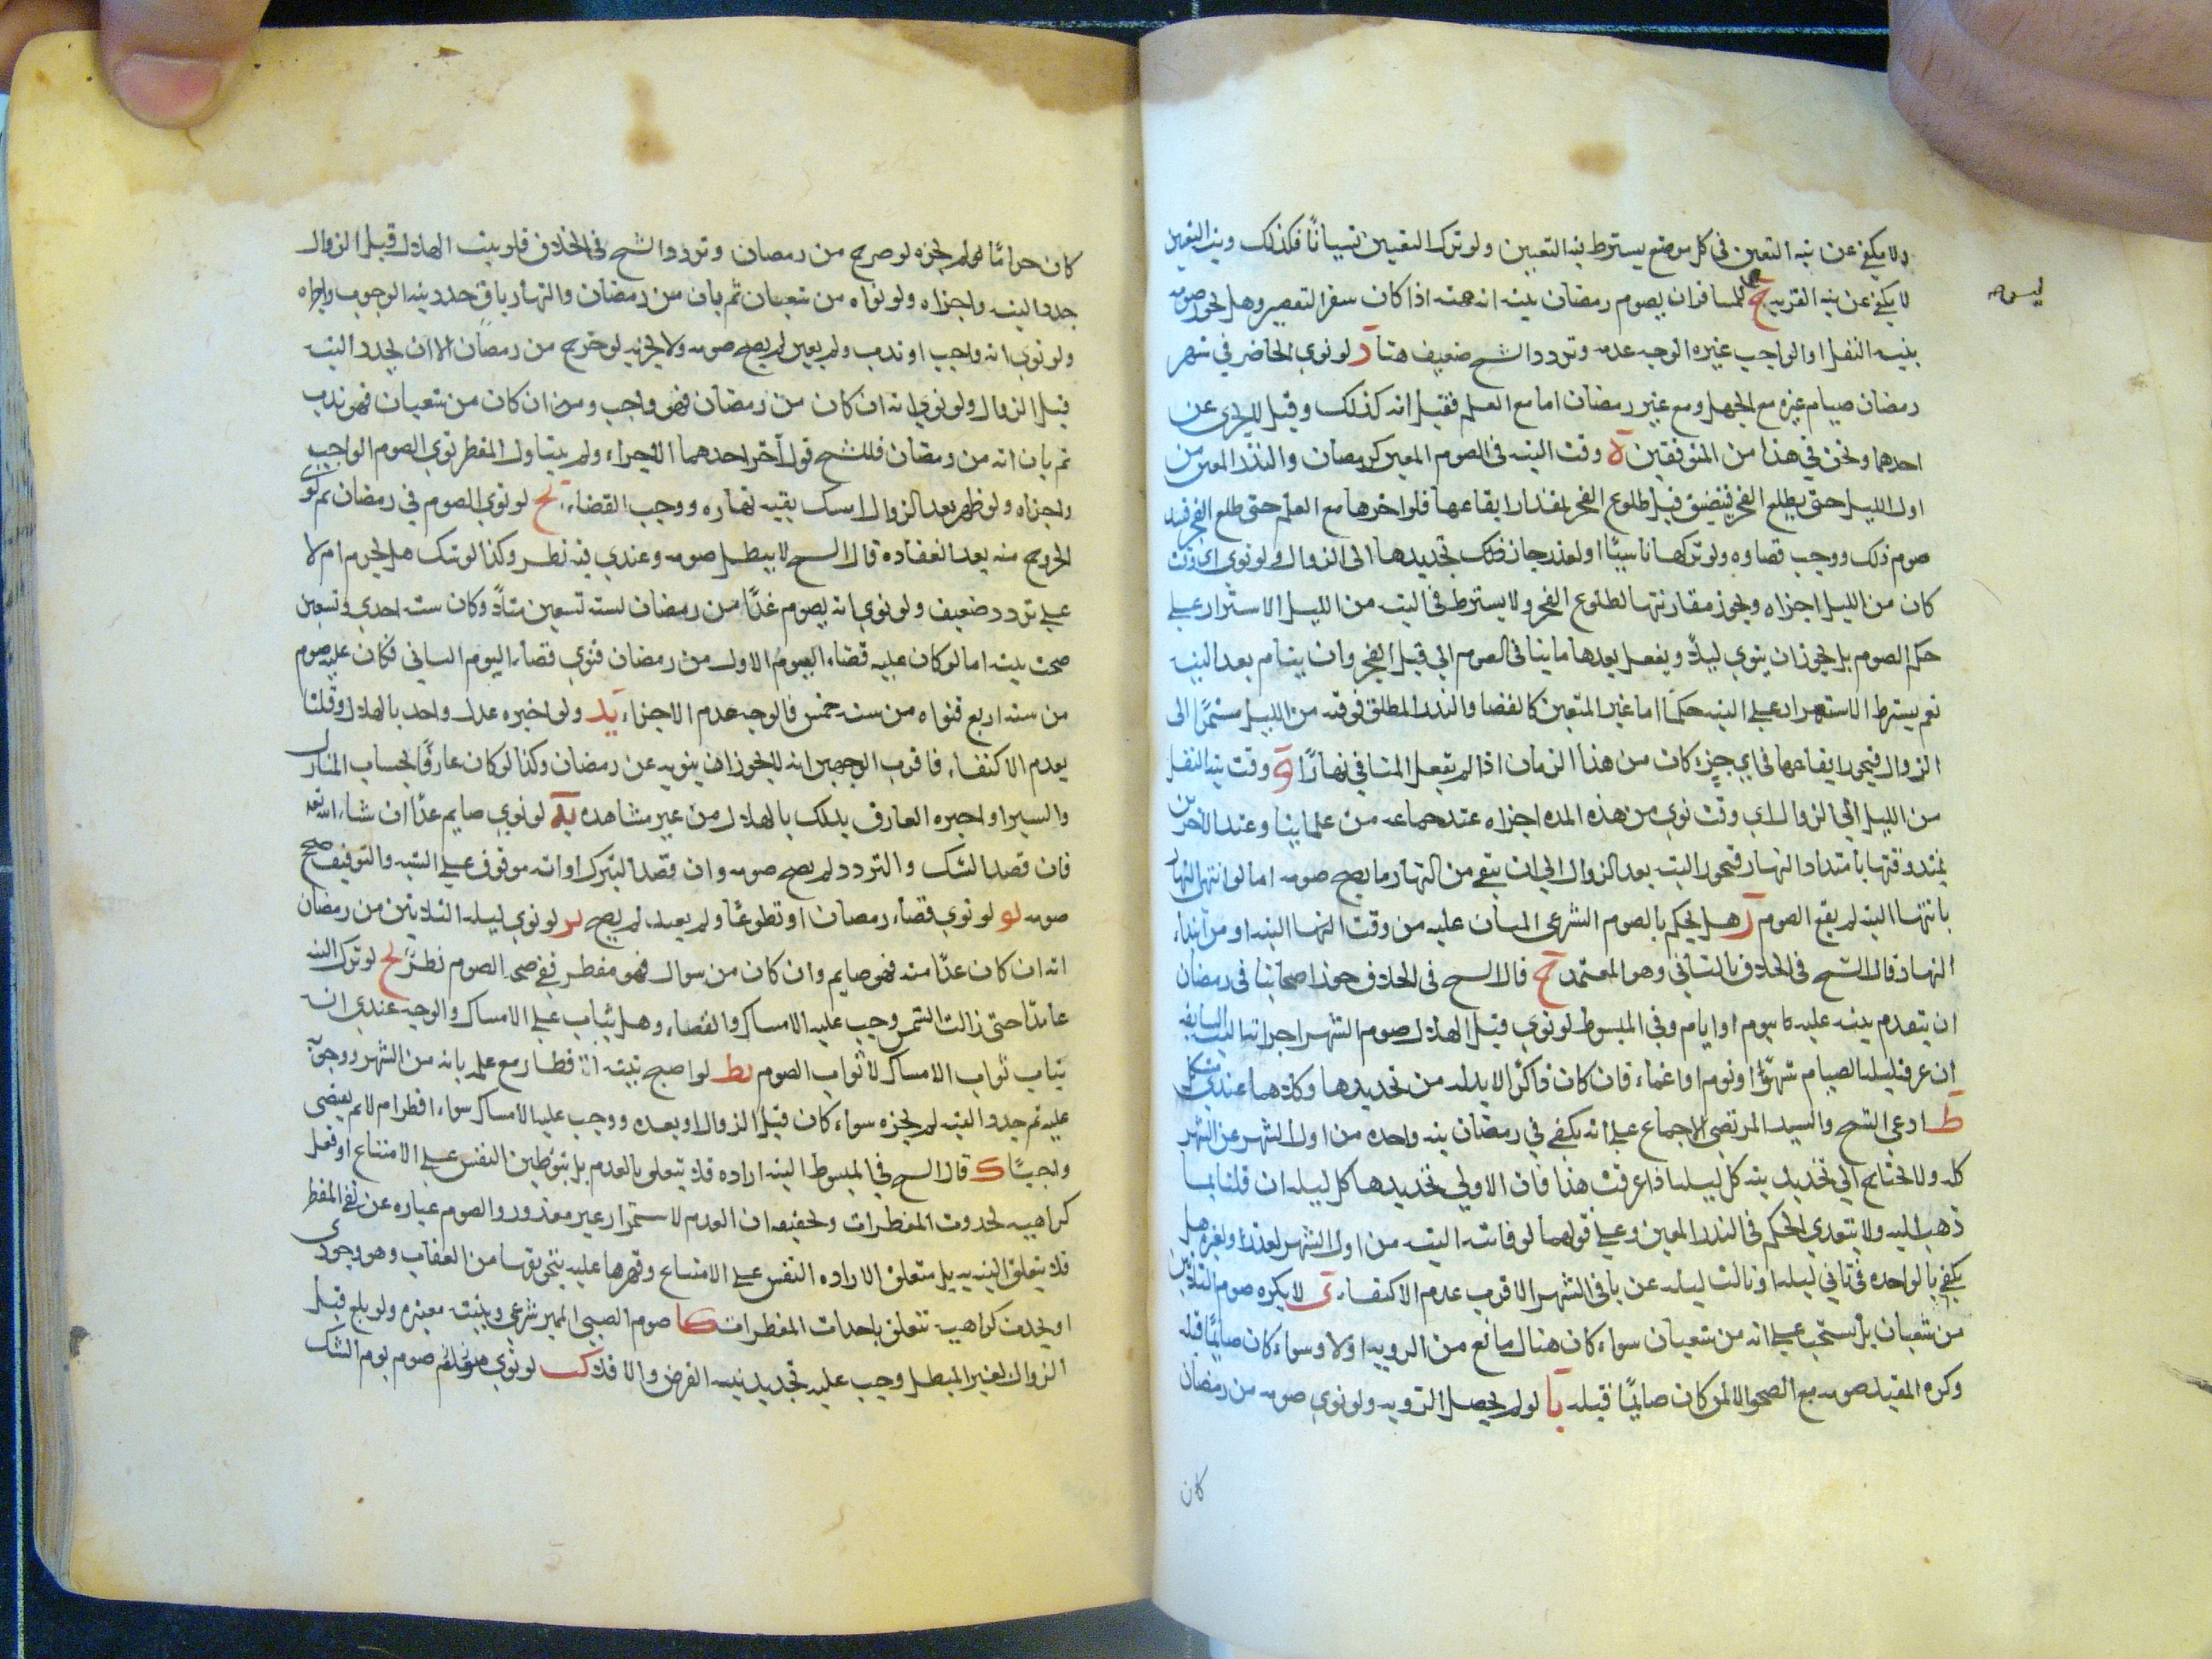 ولا يكفي عن نية التعين في كل موضع يشترط فيه التعيين ولو ترك التعيين نسيانا فكذلك ونية التعين
لا يكفي عن نية القربة ج للمسافر ان يصوم رمضان بنية انه منه اذا كان سفر التقصير وهل يجوز صومه
ليس
بنية النفل او الواجب غيره الوجه عدمه وتردد الشيخ ضعيف هنا د لو نوى الحاضر في شهر
رمضان صيام غيره مع الجهل ومع غير رمضان اما مع العلم فقيل انه كذلك وقيل لا يجزي عن
احدهما ونحن في هذا من المتوقفين ه وقت النية في الصوم المعين كرمضان والنذر المعين من
اول الليل حتى يطلع الفجر فيتضيق قبل طلوع الفجر بمقدار ايقاعها فلو اخرها مع العلم حتى طلع الفجر فسد
صوم ذلك ووجب قضاوه ولو تركها ناسيا او لعذر جاز تجديدها الى الزوال ولو نوى اي وقت
كان من الليل اجزاه ويجوز مقارنتها لطلوع الفجر ولا يشترط في النية من الليل الاستمرار على
حكم الصوم بل يجوز ان ينوي ليلا ويفعل بعدها ما ينافي الصوم الى قبل الفجر وان ينام بعد النية
نعم يشترط الاستمرار على النية حكما اما غير المتعين كالقضا والنذر المطلق فوقته من الليل مستمرا الى
الزوال فيجوز ايقاعها في اي جزء كان من هذا الزمان اذا لم يفعل المنافي نهارا و وقت نية النفل
من الليل الى الزوال اي وقت نوى من هذه المدة اجزاه عند جماعة من علماينا وعند الاخرين
يمتد وقتها بامتداد النهار فيجوز النية بعد الزوال الى ان يبقى من النهار ما يصح صومه اما لو انتهى النهار
بانتها النية لم يقع الصوم ز هل يحكم بالصوم الشرعي المثاب عليه من وقت النية او من ابتداء
النهار قال الشيخ في الخلاف بالثاني وهو المعتمد ح قال الشيخ في الخلاف جوز اصحابنا في رمضان
ان يتقدم نيته عليه بيوم او ايام وفي المبسوط لو نوى قبل الهلال صوم الشهر اجزاته النية السابقة
ان عرض ليلة الصيام سهو او نوم او اغماء فان كان ذاكرا لابد له من تجديدها وكلاهما عندي مشكل
ط ادعى الشيخ والسيد المرتضى الاجماع على انه يكفي في رمضان نية واحدة من اول الشهر عن الشهر
كله ولا يحتاج الى تجديد نية كل ليلة اذا عرفت هذا فان الاولى تجديدها كل ليلة ان قلنا بما
ذهبا اليه ولا يتعدى الحكم في النذر المعين وعلى قولهما لو فاتته النية من اول الشهر لعذر او لغيره هل
يكتفي بالواحدة في ثاني ليلة او ثالث ليلة عن باقي الشهر الاقرب عدم الاكتفاء ى لا يكره صوم الثلاثين
من شعبان بل يستحب على انه من شعبان سواء كان هناك مانع من الروية او لا وسواء كان صايما قبله
وكره المفيد صومه مع الصحو الا لمن كان صايما قبله يا لو لم يحصل الروية ولو نوى صومه من رمضان
كان
كان حراما ولم يجزه لو خرج من رمضان وتردد الشيخ في الخلاف فلو بيت الهلال قبل الزوال
جدد النية واجزاه ولو نواه من شعبان ثم بان من رمضان والنهار باق جدد نية الوجوب واجزاه
ولو نوى انه واجب او ندب ولم يعين لم يصح صومه ولا يجزيه لو خرج من رمضان الا ان يجدد النية
قبل الزوال ولو نوى انه ان كان من رمضان فهو واجب وان كان من شعبان فهو ندب
ثم بان انه من رمضان فللشيخ قولان احدهما الاجزاء ولو لم يتناول المفطر نوى الصوم الواجب
واجزاه ولو ظهر بعد الزوال امسك بقية نهاره ووجب القضاء يج لو نوى الصوم في رمضان ثم نوى
الخروج منه بعد انعقاده قال الشيخ لا يبطل صومه وعندي فيه نظر وكذا لو شك هل يخرج ام لا
على تردد ضعيف ولو نوى انه يصوم غدا من رمضان لسنة تسعين مثلا وكان سنة احدى وتسعين
صحت نيته اما لو كان عليه قضاء اليوم الاول من رمضان فنوى قضاء اليوم الثاني فكان عليه صوم
من سنة اربع فنواه من سنة خمس فالوجه عدم الاجزاء يد ولو اخبره عدل واحد بالهلال وقلنا
بعدم الاكتفاء فاقرب الوجهين انه لا يجوز ان ينويه عن رمضان وكذا لو كان عارفا بحساب المنازل
والسير او اخبره العارف بذلك بالهلال من غير مشاهدة يه لو نوى صايم غدا ان شاء الله تعالى
فان قصد الشك والتردد لم يصح صومه وان قصد التبرك او انه موقوف على المشية والتوفيق صح
صومه يو لو نوى قضاء رمضان او تطوعا ولم يعينه لم يصح يز لو نوى ليلة الثلاثين من رمضان
انه ان كان غدا منه فهو صايم وان كان من شوال فهو مفطر ففي صحة الصوم نظر يح لو ترك النية
عامدا حتى زالت الشمس وجب عليه الامساك والقضاء وهل يثاب على الامساك والوجه عندي انه
يثاب ثواب الامساك لا ثواب الصوم يط لو اصبح بنية الافطار مع علمه بانه من الشهر ووجوبه
عليه ثم جدد النية لم يجزه سواء كان قبل الزوال او بعده ووجب عليه الامساك سواء افطر ام لا ثم يقضي
واجبا ك قال الشيخ في المبسوط النية ارادة فلا يتعلق بالعدم بل بتوطين النفس على الامتناع او فعل
كراهية لحدوث المفطرات وتحقيقه ان العدم لاستمراره غير مقدور والصوم عبارة عن نفي المفطر
فلا يتعلق النية به بل متعلق الارادة النفس على الامتناع وقهرها عليه بتخويفها من العقاب وهو وجودي
او يحدث كراهية تتعلق باحداث المفطرات كا صوم الصبي المميز شرعي ونيته معتبرة ولو بلغ قبل
الزوال بغير المبطل وجب عليه تجديد نية الفرض والا فلا كب لو نوى صوم يوم الشك